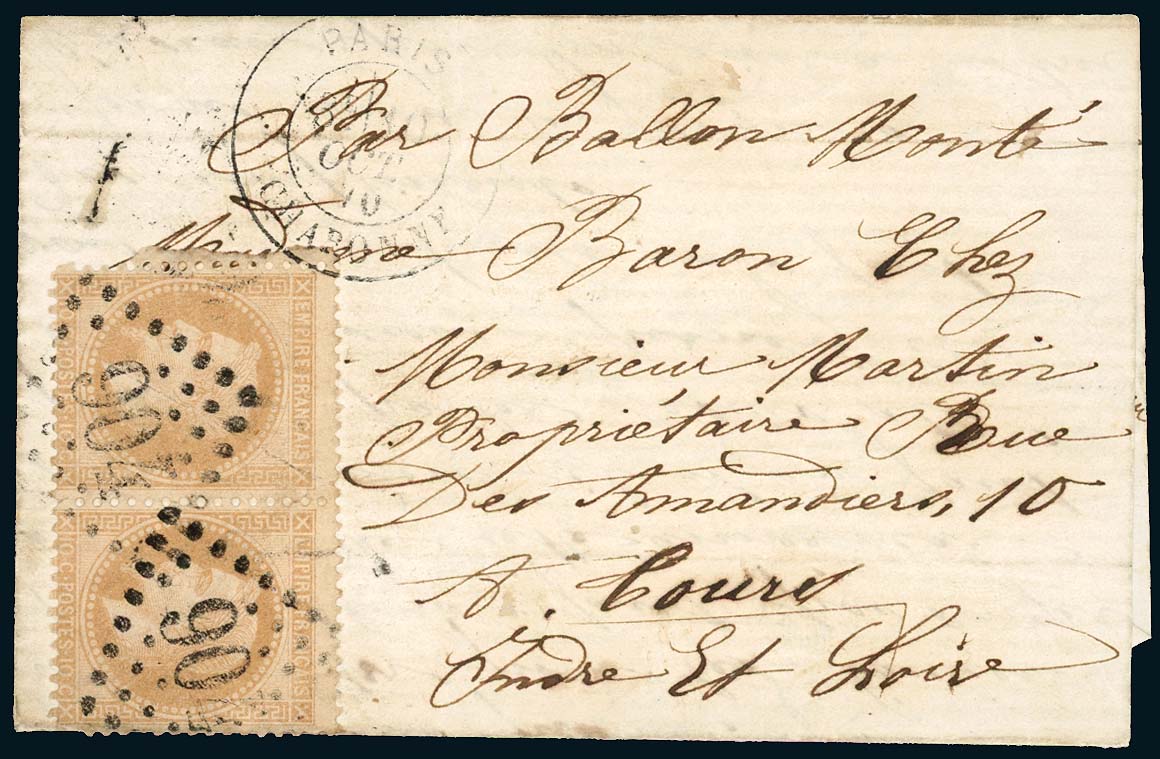 PARIS
OCT.
70
CHARONNE
1
Par Ballon Monté
Madame Baron Chez
Monsieur Martin
Propriétaire Rue
Des Amandiers, 10
A. Tours
Indre Et Loire
EMPIRE FRANÇAIS
10 C. POSTES 10 C.
EMPIRE FRANÇAIS
10 C. POSTES 10 C.